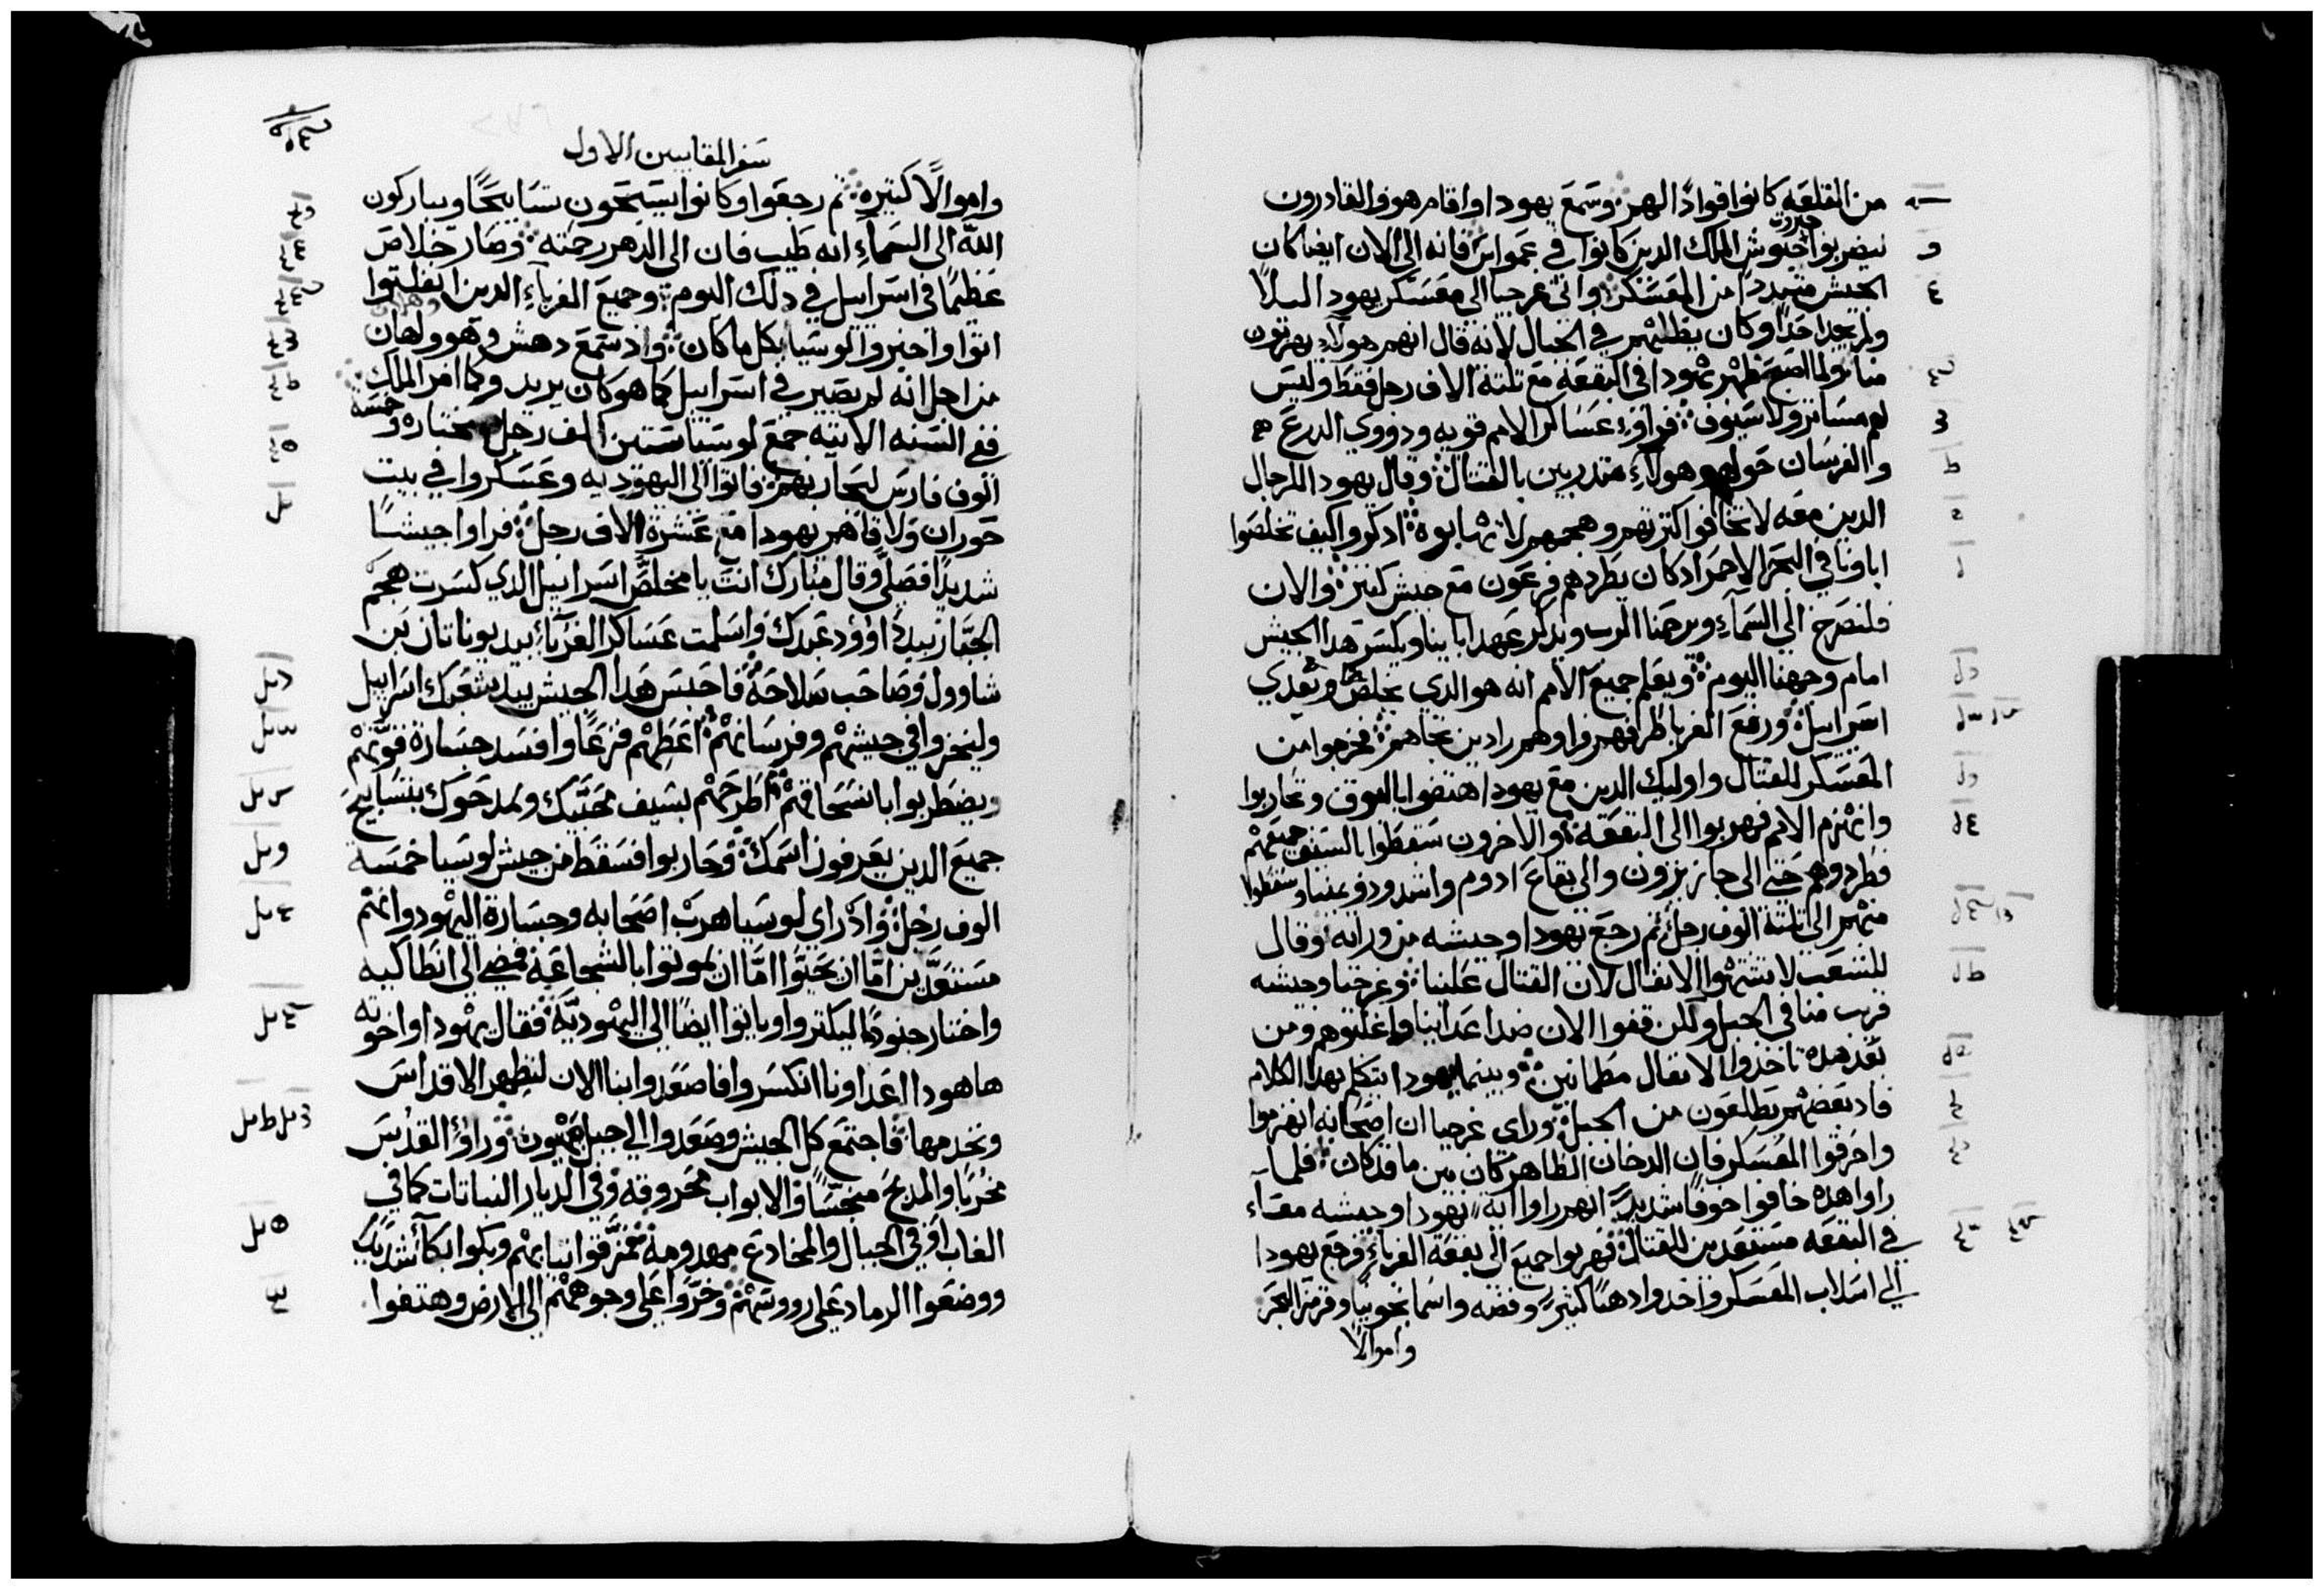 من القلعه كانوا قوادًا لهم وسمع يهودا واقام هو والقادرون
ليضربوا جيوش الملك الدين كانوا في عمواس فانه الى الان ايضا كان
الجيش متبددا من المعسكر واتى غرجيا الى معسكر يهودا ليلًا
ولم يجد احدًا وكان يطلبهم في الجبال لانه قال انهم هولاء يهربون
منا ولما اصبح ظهر يهودا في البقعه مع تلتة الاف رجل فقط وليس
لهم مساتر ولا سيوف فراوا عساكر الامم قويه ودووي الدرع
والفرسان حولهم وهولاء متدربين بالقتال وقال يهودا للرجال
الدين معه لا تخافوا كترتهم وهجمهم لا تهابوه ادكروا كيف تخلصوا
اباونا في البحر الاحمر اد كان يطردهم فرعون مع جيش كتير والان
فلنصرخ الى السماء ويرحمنا الرب ويدكر عهد ابايينا ويكسر هدا الجيش
امام وجهنا اليوم ويعلم جميع الامم انه هو الدي يخلص ويفدي
اسراييل ورفع الغربا طرفهم فراوهم رادين تجاههم فخرجوا من
المعسكر للقتال واوليك الدين مع يهودا هتفوا بالبوق وتحاربوا
وانهزم الامم فهربوا الى البقعة والاخرون سقطوا بالسيف جميعهم
فطردوهم حتى الى جازيرون والى بقاع ادوم واشدود ويمنيا وسقطوا
منهم الى تلتة الوف رجل تم رجع يهودا وجيشه من ورايه وقال
للشعب لا تشتهوا الانفال لان القتال علينا وغرجيا وجيشه
قريب منا في الجبل ولكن قفوا الان ضد اعداينا واغلبوهم ومن
بعد هده تاخدوا الانفال مطمانين وبينما يهودا يتكلم بهدا الكلام
فاد بعضهم يطلعون من الجبل وراى غرجيا ان اصحابه انهزموا
واحرقوا المعسكر فان الدخان الظاهر كان يبين ما قد كان فلما
راوا هده خافوا خوفًا شديدًا انهم راوا ايه يهودا وجيشه معًا
في البقعه مستعدين للقتال فهربوا جميع الى بقعة الغرباء فرجع يهودا
الى اسلاب المعسكر واخدوا دهبًا كتيرًا وفضه واسمانجونيا وفرفير البحر
واموالًا
سفر المقابيين الاول
واموالًا كتيره تم رجعوا وكانوا يسبحون تسابيحًا ويباركون
الله الى السماء انه طيب فان الى الدهر رحمته وصار خلاص
عظيمًا في اسراييل في دلك اليوم وجميع الغرباء الدين انفلتوا
اتوا واخبروا لوسيا بكل ما كان واد سمع دهش وهو ولهان
من اجل انه لم يصير في اسراييل كما هو كان يريد وكما امر الملك
ففي السنه الاتيه جمع لوسيا ستين الف رجل مختاره وخمسة
الوف فارس ليحاربهم فاتوا الى اليهوديه وعسكروا في بيت
حوران ولاقاهم يهودا مع عشرة الاف رجل فراوا جيشًا
شديدًا فصلى وقال مبارك انت يا مخلص اسراييل الدي كسرت هجم
الجبار بيد داوود عبدك واسلمت عساكر الغرباء بيد يوناتان بن
شاوول وصاحب سلاحه فاحبس هدا الجيش بيد شعبك اسراييل
وليخزوا في جيشهم وفرسانهم اعطهم فزعًا وافسد جسارة قوتهم
ويضطربوا بانسحاقهم اطرحهم بسيف محبيك ويمدحوك بتسابيح
جميع الدين يعرفون اسمك وحاربوا فسقط من جيش لوسيا خمسة
الوف رجل واد راى لوسيا هرب اصحابه وجسارة اليهود وانهم
مستعدين اما ان يحيوا اما ان يموتوا بالشجاعة فمضى الى انطاكيه
واختار جنودًا ليكتروا وياتوا ايضًا الى اليهودية فقال يهودا واخوته
ها هودا اعداونا انكسروا فاصعدوا بنا الان لنطهر الاقداس
ونخدمها فاجتمع كل الجيش وصعدوا الى جبل صهيون وراوا القدس
مخربًا والمدبح منجسًا والابواب محروقه وفي الديار النباتات كما في
الغاب او في الجبال والمخادع مهدومة فمزقوا تيابهم وبكوا بكاءً شديدًا
ووضعوا الرماد على رووسهم وخروا على وجوههم الى الارض وهتفوا